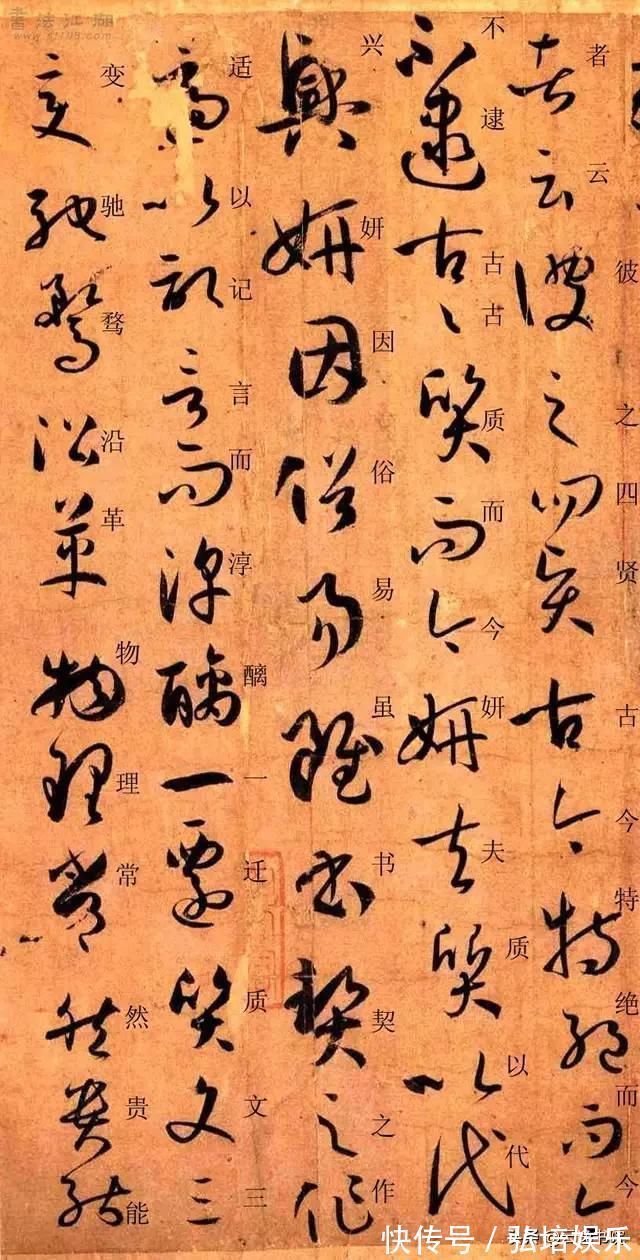 者云彼之四贤古今特绝而今
不逮古古质而今妍夫质以代
兴妍因俗易虽书契之作
适以记言而淳醨一迁质文三
变驰骛沿革物理常然贵能
書法江湖
快传号／弘培娱乐